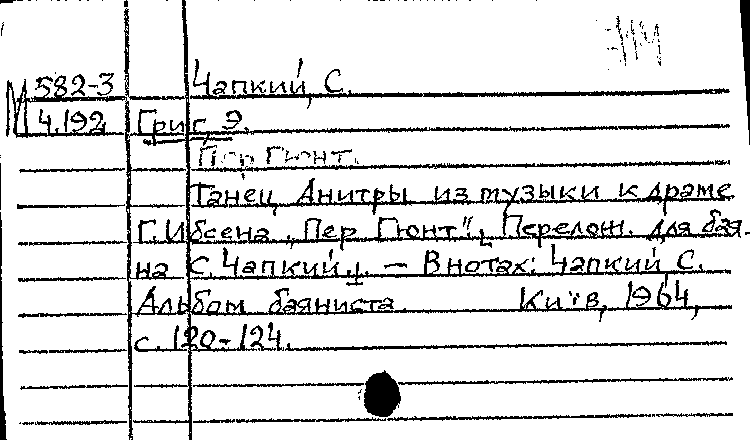 М 582-3 Чапкий, С.
4.192 Григ, Э.
Пер Гюнт.
Танец Анитры из музыки к драме
Г. Ибсена „Пер Гюнт". Перелож. для бая-
на С. Чапкий. — В нотах: Чапкий С.
Альбом баяниста. Київ, 1964,
с. 120-124.